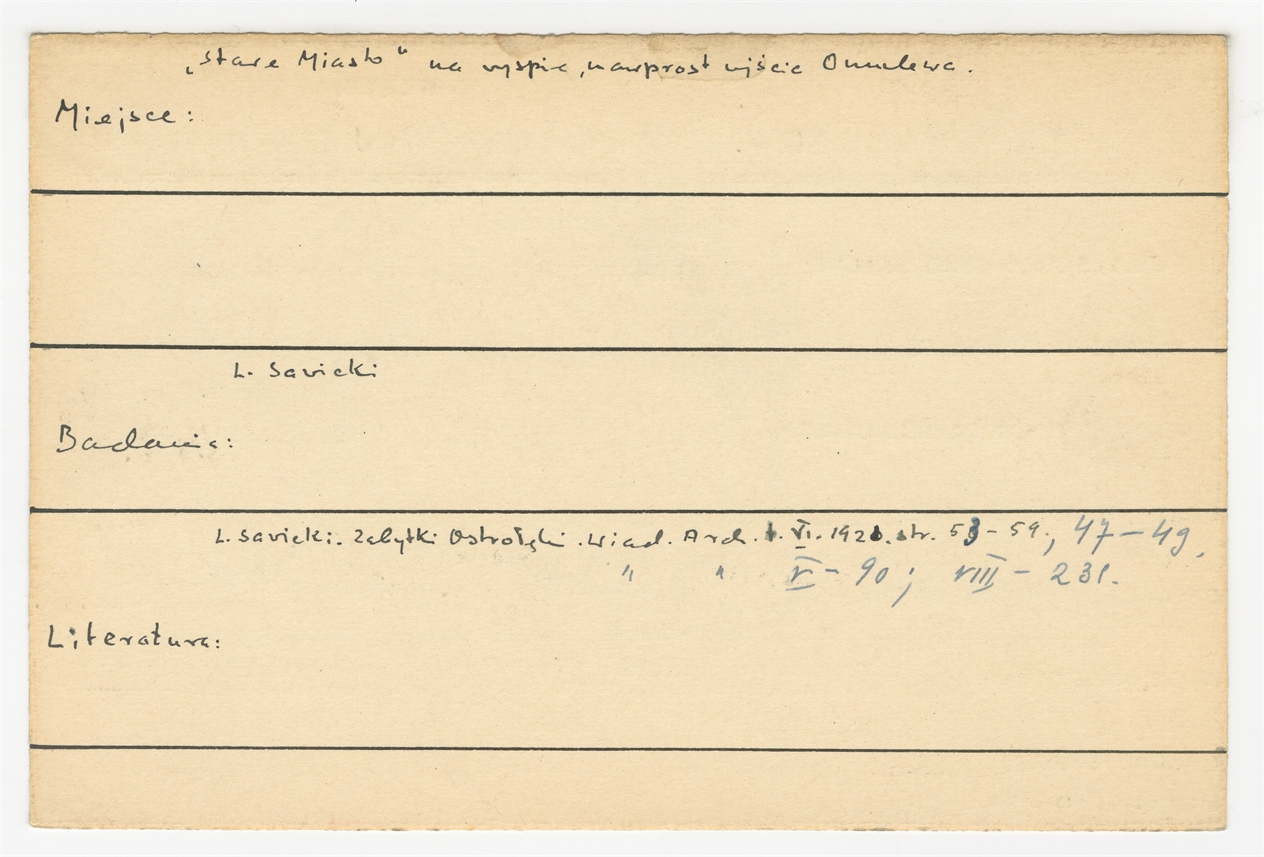 „Stare Miasto" na wyspie, nawprost ujścia Omulewa.
Miejsce:
L. Sawicki
Badania:
L. Sawicki. Zabytki Ostrołęki. Wiad. Arch. t. VI. 1921. str. 53-59., 47-49,
" " V - 90; VIII - 231.
Literatura: